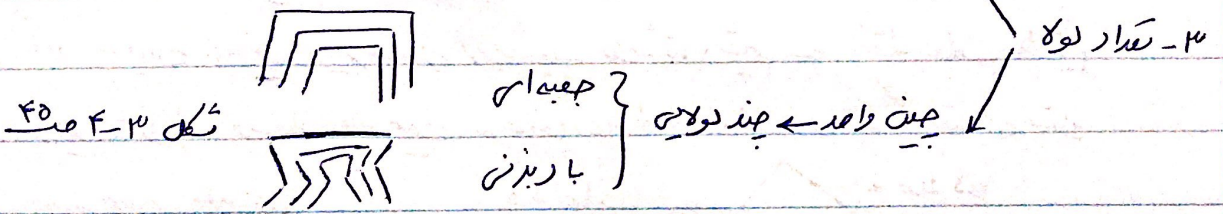 ۳- تعداد لولا
چین واحد ← چند لولایی
جعبه‌ای
بادبزنی
شکل ۳-۴ صـ ۴۵